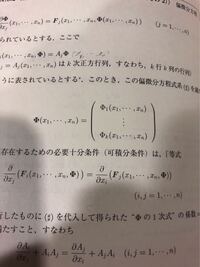 ∂Φ/∂x_j = F_j(x_1, ⋯, x_n, Φ(x_1, ⋯, x_n)) (j = 1, ⋯, n)
られているとする。ここで
(x_1, ⋯, x_n, Φ) = A_j(x_1, ⋯, x_n)Φ
= A_j(x_1, ⋯, x_n) は k 次正方行列、すなわち、k 行 k 列の行列)
うに表されているとする*。このとき、この偏微分方程式系 (♯) を
Φ(x_1, ⋯, x_n) = ( Φ_1(x_1, ⋯, x_n)
⋮
Φ_k(x_1, ⋯, x_n) )
存在するための必要十分条件 (可積分条件) は、『等式
∂/∂x_j (F_i(x_1, ⋯, x_n, Φ)) = ∂/∂x_i (F_j(x_1, ⋯, x_n, Φ))
(i, j = 1, ⋯, n)
行したものに (♯) を代入して得られた "Φ の 1 次式" の係数
満たすこと、すなわち
∂A_i/∂x_j + A_iA_j = ∂A_j/∂x_i + A_jA_i (i, j = 1, ⋯, n)